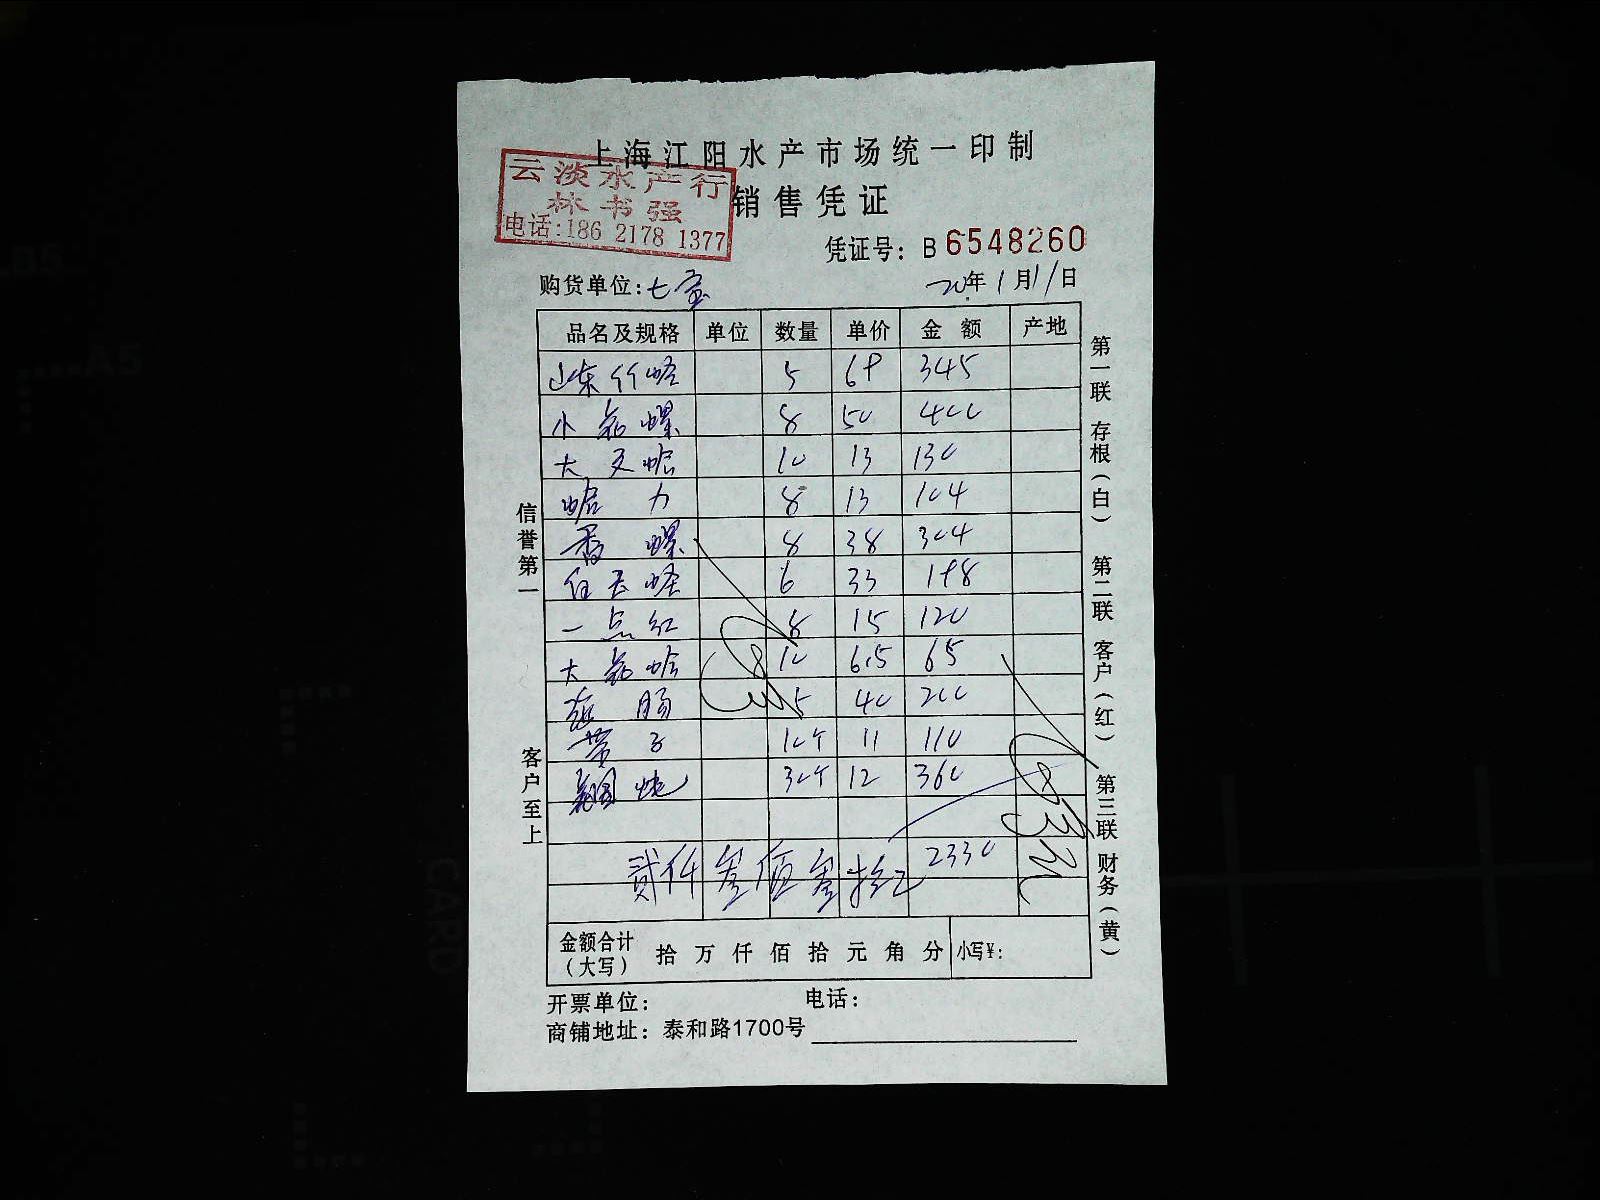 上海江阳水产市场统一印制
云淡水产行
林书强
电话:186 2178 1377
销售凭证
凭证号: B 6548260
购货单位:七宝 20年1月11日
品名及规格 单位 数量 单价 金额 产地
山东竹蛏 5 69 345
小花螺 8 50 400
大文蛤 10 13 130
蛤力 8 13 104
香螺 8 38 304
白玉蛏 6 33 198
一点红 8 15 120
大花蛤 10 6.5 65
肠 5 40 200
带子 10个 11 110
30个 12 360
贰仟叁佰叁拾元 2330
金额合计(大写) 拾万仟佰拾元角分 小写¥:
开票单位: 电话:
商铺地址: 泰和路1700号
信誉第一
客户至上
第一联 存根(白) 第二联 客户(红) 第三联 财务(黄)